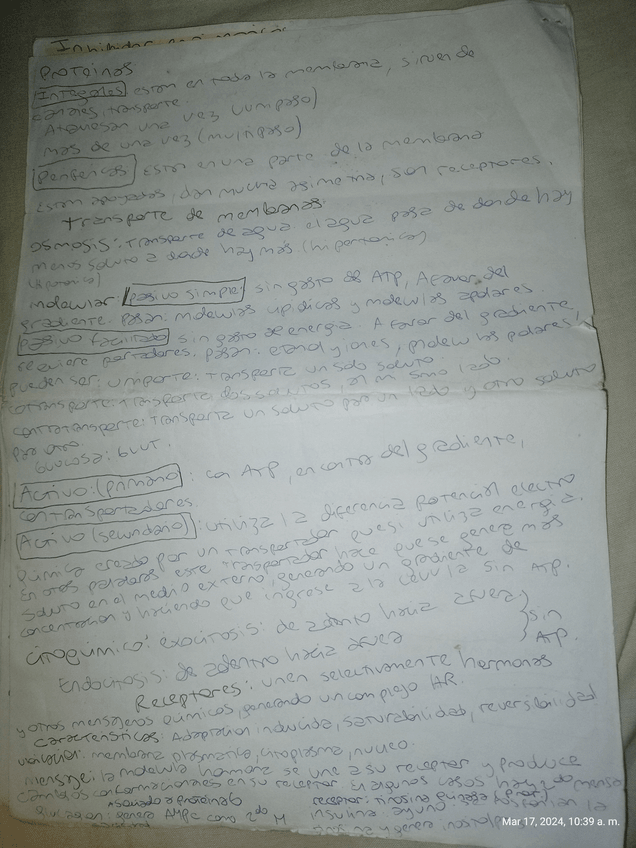 Proteinas
Integrales están en toda la membrana, sirven de
canales, transporte.
Atraviesan una vez (unipaso)
más de una vez (multipaso)
Perifericas están en una parte de la membrana
Están apoyadas, dan mucha asimetria, son receptores.
Transporte de membranas.
osmosis: Transporte de agua. el agua pasa de donde hay
menos soluto a donde hay más (hipertonico)
molecular: pasivo simple sin gasto de ATP, A favor del
gradiente. Pasan: moleculas lipidicas y moleculas apolares.
pasivo facilitado sin gasto de energia. A favor del gradiente,
requiere portadores. Pasan: etanol y iones, moleculas polares,
pueden ser: uniporte: transporta un solo soluto
cotransporte: transporta dos solutos, al mismo lado.
contratransporte: transporta un soluto por un lado y otro soluto
por otro.
Glucosa: GLUT.
Activo: (primario) : con ATP, en contra del gradiente,
con transportadores
Activo (secundario) : utiliza la diferencia potencial electro
química creado por un transportador que si utiliza energia.
En otras palabras este transportador hace que se genere más
soluto en el medio externo, generando un gradiente de
concentración y haciendo que ingrese a la celula sin ATP.
citoquimico: exocitosis: de adentro hacia afuera } sin
Endocitosis: de adentro hacia afuera ATP.
Receptores: unen selectivamente hormonas
y otros mensajeros químicos, generando un complejo HR.
Características: Adaptacion inducida, saturabilidad, reversibilidad
ubicación: membrana plasmatica, citoplasma, nucleo.
mensaje: la molecula hormona se une a su receptor y produce
cambios conformacionales en su receptor. En algunos casos hay 2do mensa
asociado a proteina G receptor: tirosina quinasa
genera AMPc como 2do M. insulina